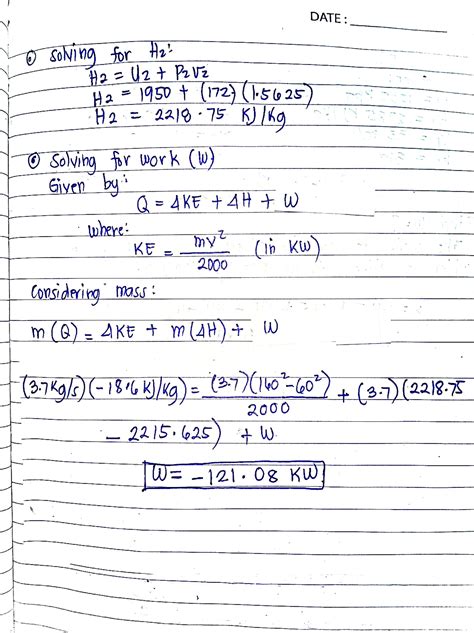 DATE:
⊙ solving for H2:
H2 = U2 + P2V2
H2 = 1950 + (172)(1.5625)
H2 = 2218.75 KJ/Kg
⊙ Solving for work (W)
Given by:
Q = ΔKE + ΔH + W
where:
KE = mv²/2000 (in KW)
Considering mass:
m(Q) = ΔKE + m(ΔH) + W
(3.7Kg/s)(-18.6 KJ/Kg) = (3.7)(160²-60²)/2000 + (3.7)(2218.75
- 2215.625) + W
W = -121.08 KW